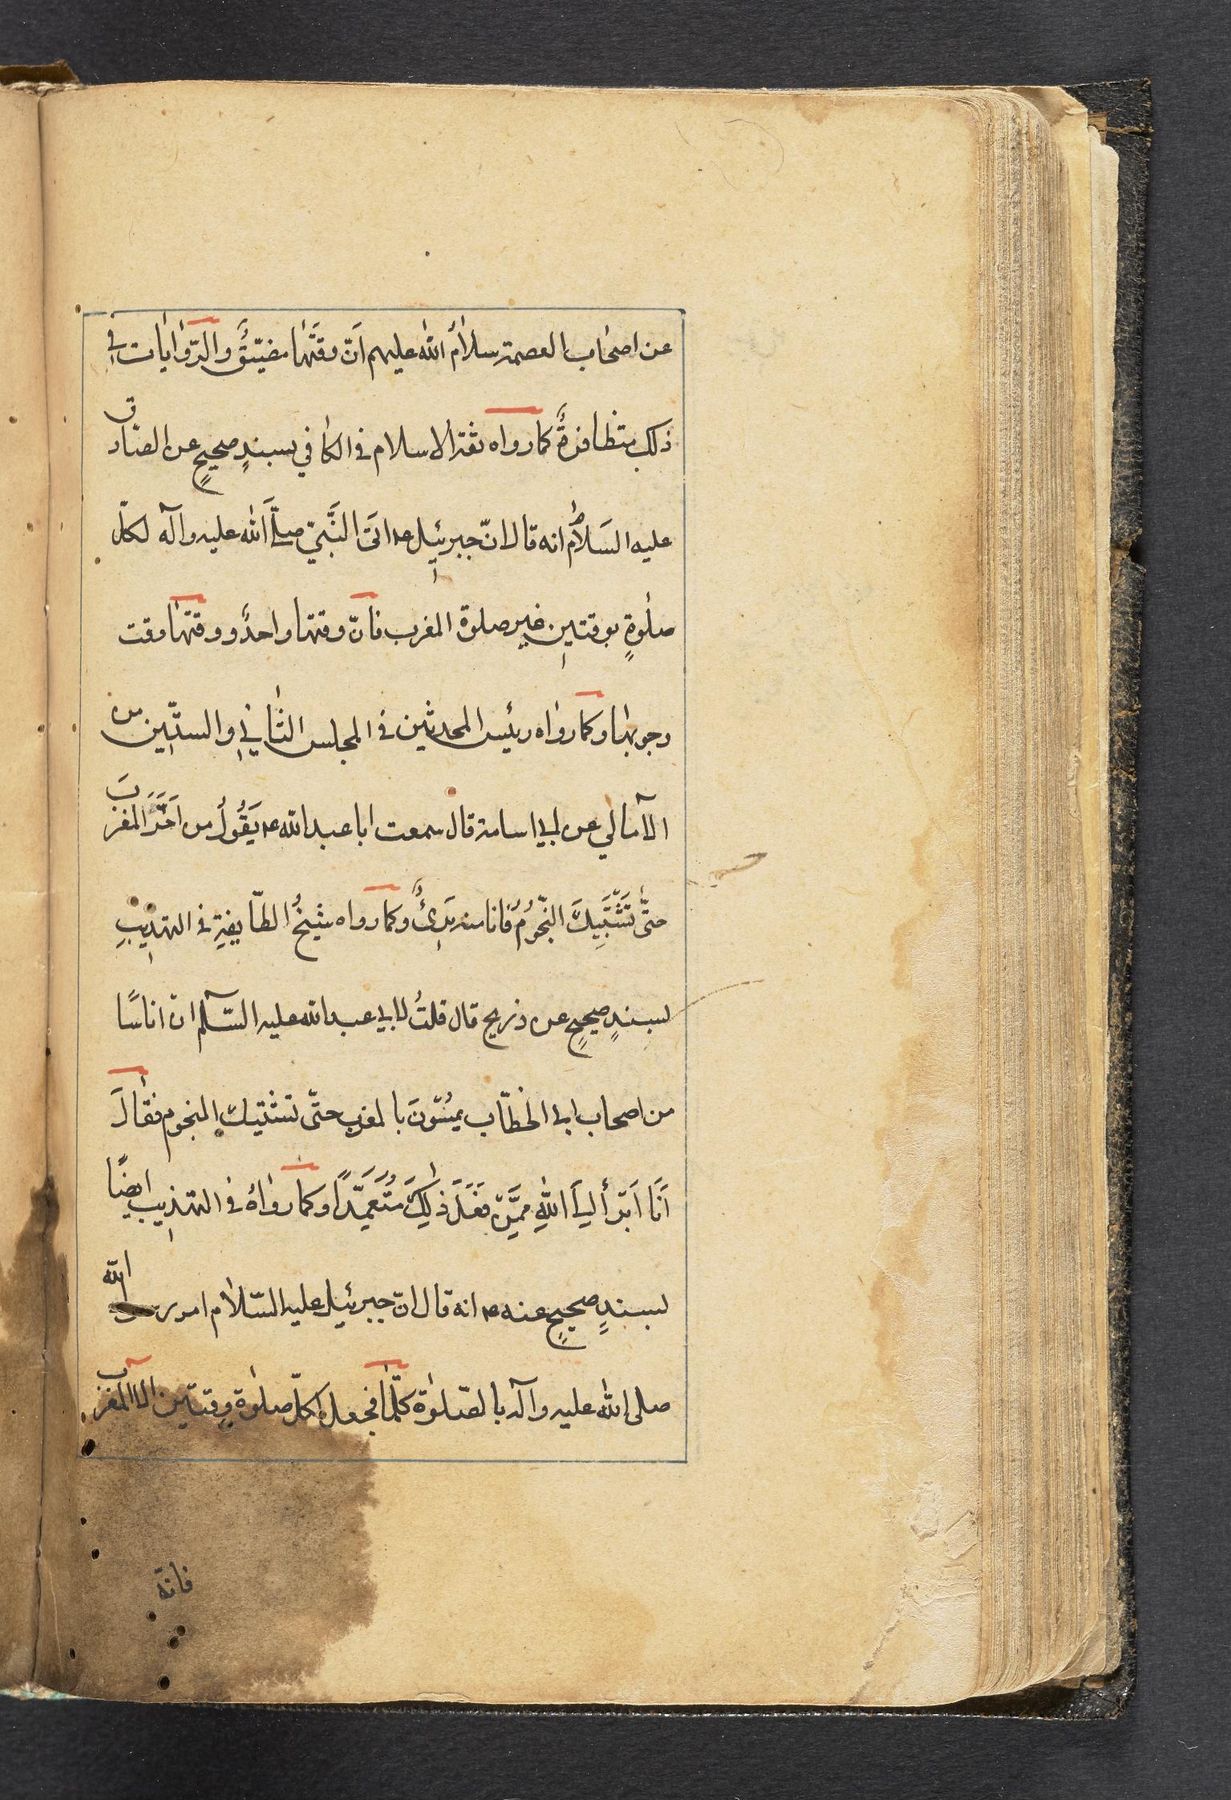 عن اصحاب العصمة سلام الله عليهم انّ وقتها مضيّق والرّوايات في
ذلك متظافرةٌ كما رواه ثقة الاسلام في الكافي بسندٍ صحيحٍ عن الصادق
عليه السلام انه قال انّ جبرئيل ع اتى النَّبيّ صلّى الله عليه وآله لكلّ
صلوةٍ بوقتين غير صلوة المغرب فانّ وقتها واحدٌ ووقتها وقت
وجوبها وكما رواه رئيس المحدثين في المجلس الثاني والستّين من
الآمالي عن ابي اسامة قال سمعت ابا عبد الله ع يَقُولُ من اَخَّرَ المغربَ
حتّى تَشْتَبِكَ النّجُومُ فانا منه بَرِئٌ وكما رواه شيخُ الطّايفةِ في التهذيبِ
بسندٍ صحيحٍ عن ذريح قال قلتُ لابي عبد الله عليه السّلم ان اناسًا
من اصحاب ابي الخطّاب يمسّونَ بالمغرب حتّى تشتبك النجوم فقالَ
اَنَا اَبْرَأُ اِلَى اللهِ مِمَّنْ فَعَلَ ذٰلِكَ مُتَعَمِّدًا وكما رواهُ في التهذيب ايضًا
بسندٍ صحيحٍ عنه ع انه قال انّ جبرئيل عليه السّلام امر رسول الله
صلى الله عليه وآله بالصّلوة كلّها فجعل لكلّ صلوة وقتين الا المغرب
فانه